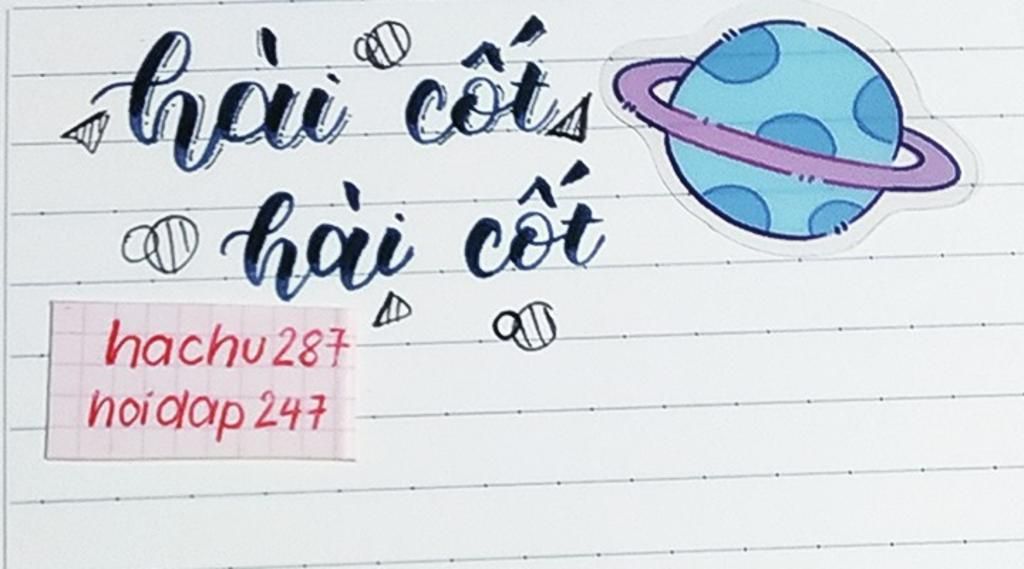 hài cốt
hài cốt
hachu287
hoidap247